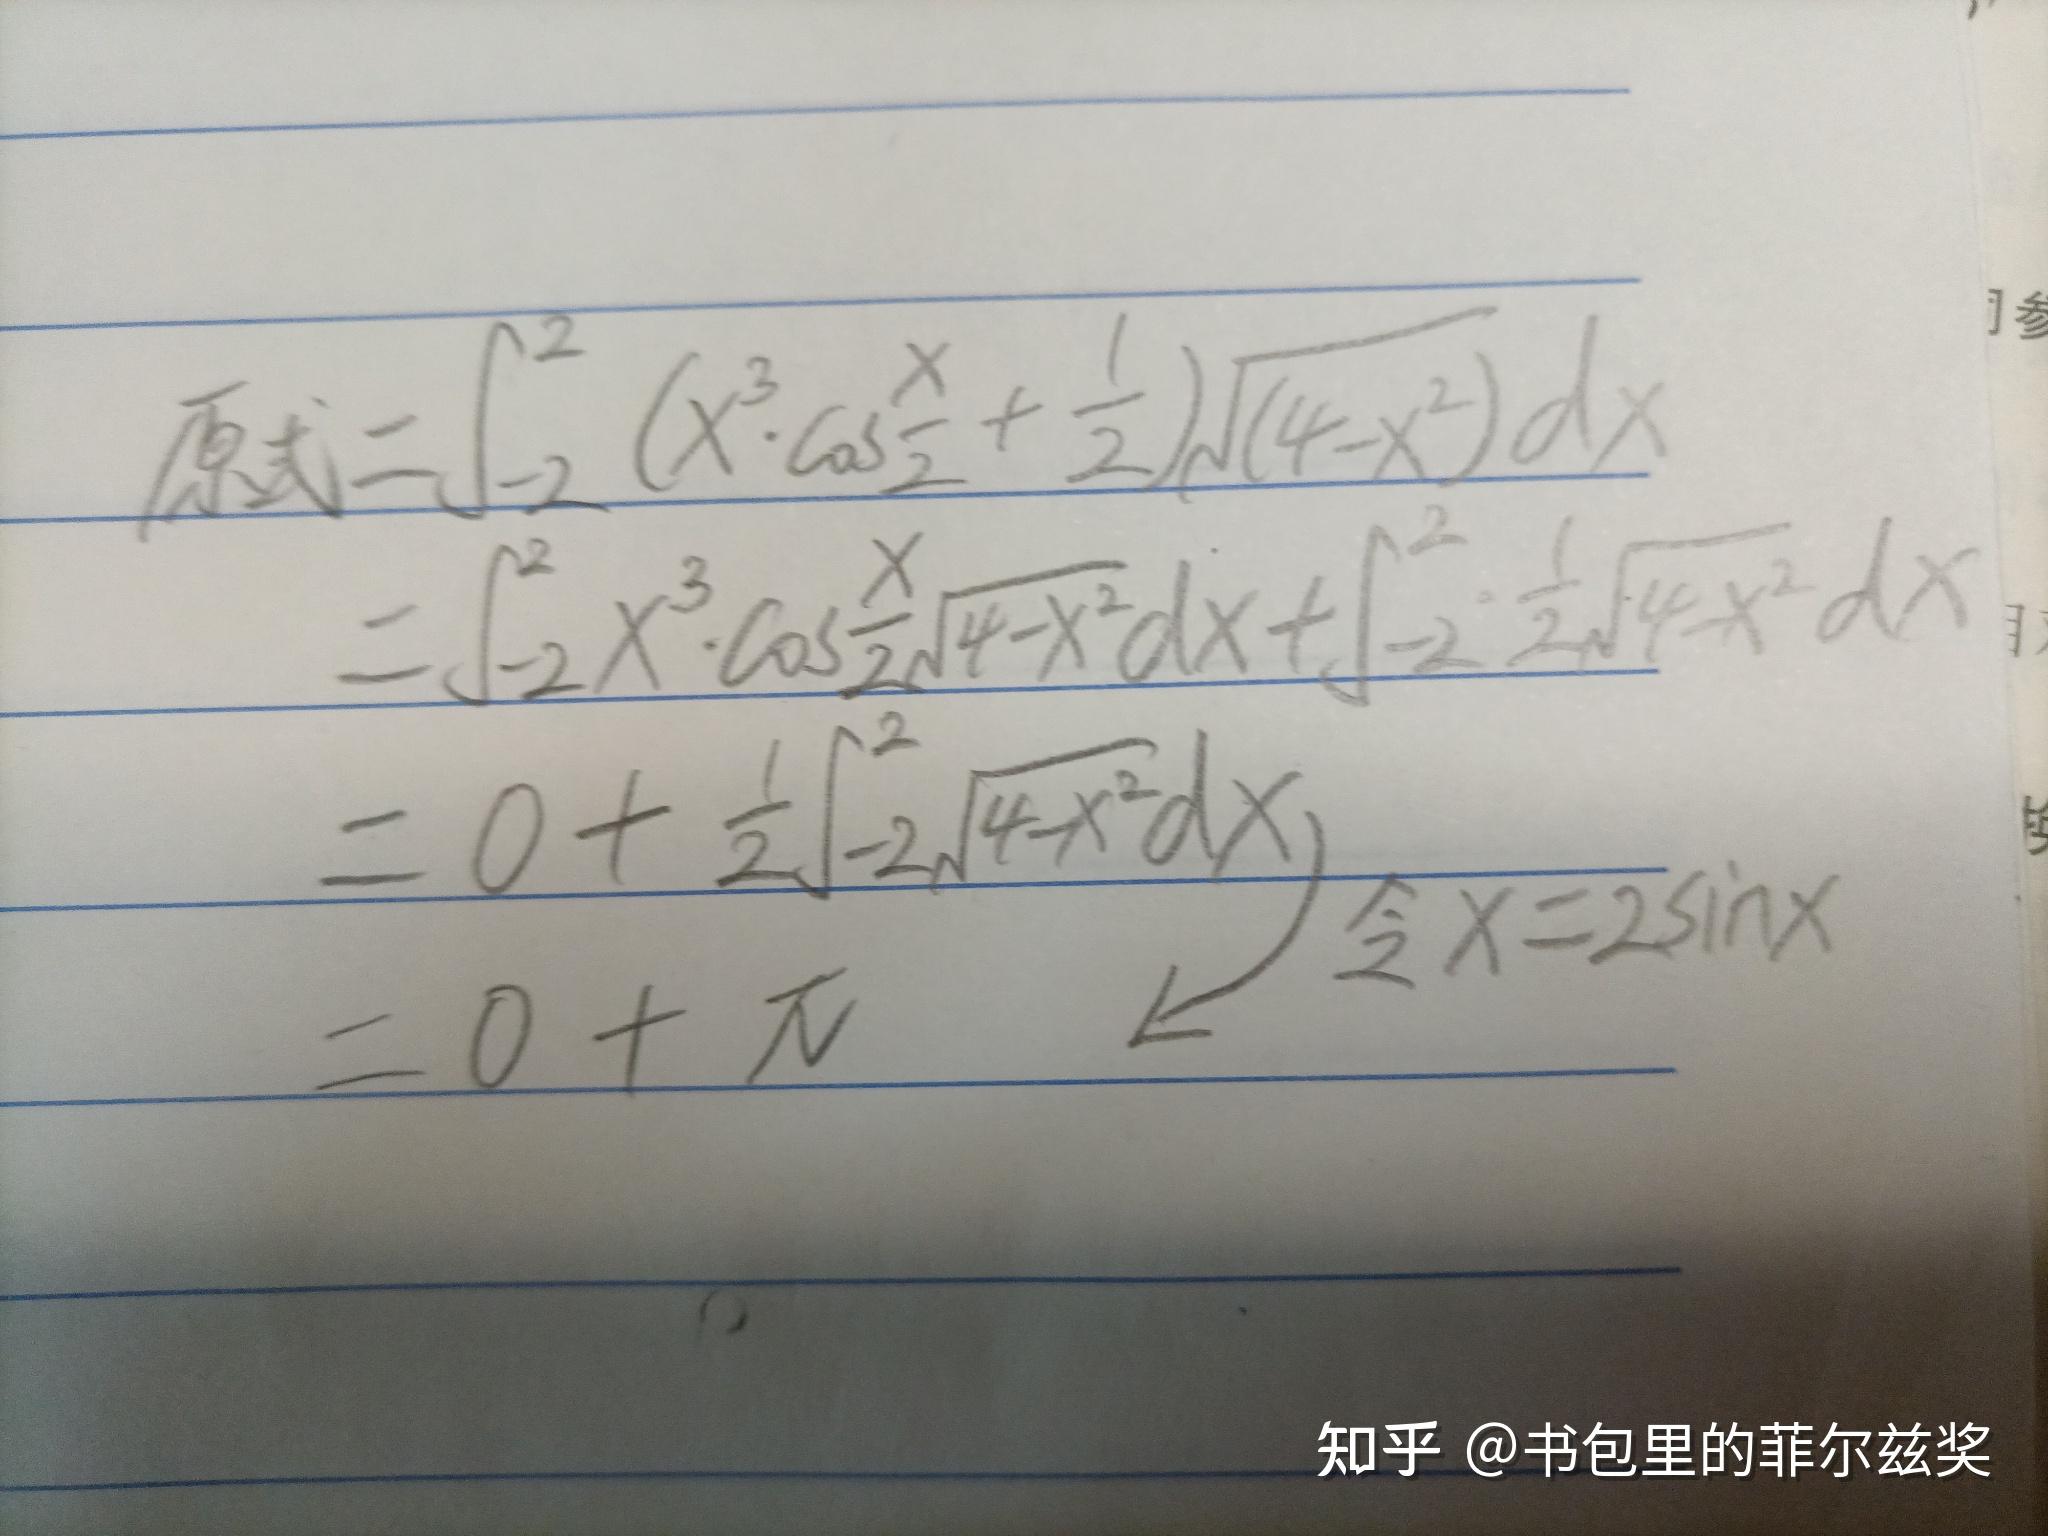 原式=∫_{-2}^{2}(x³·cos\frac{x}{2}+\frac{1}{2})√(4-x²)dx
=∫_{-2}^{2}x³·cos\frac{x}{2}√4-x²dx+∫_{-2}^{2}·\frac{1}{2}√4-x²dx
=0+\frac{1}{2}∫_{-2}^{2}√4-x²dx
令x=2sinx
=0+π
知乎 @书包里的菲尔兹奖